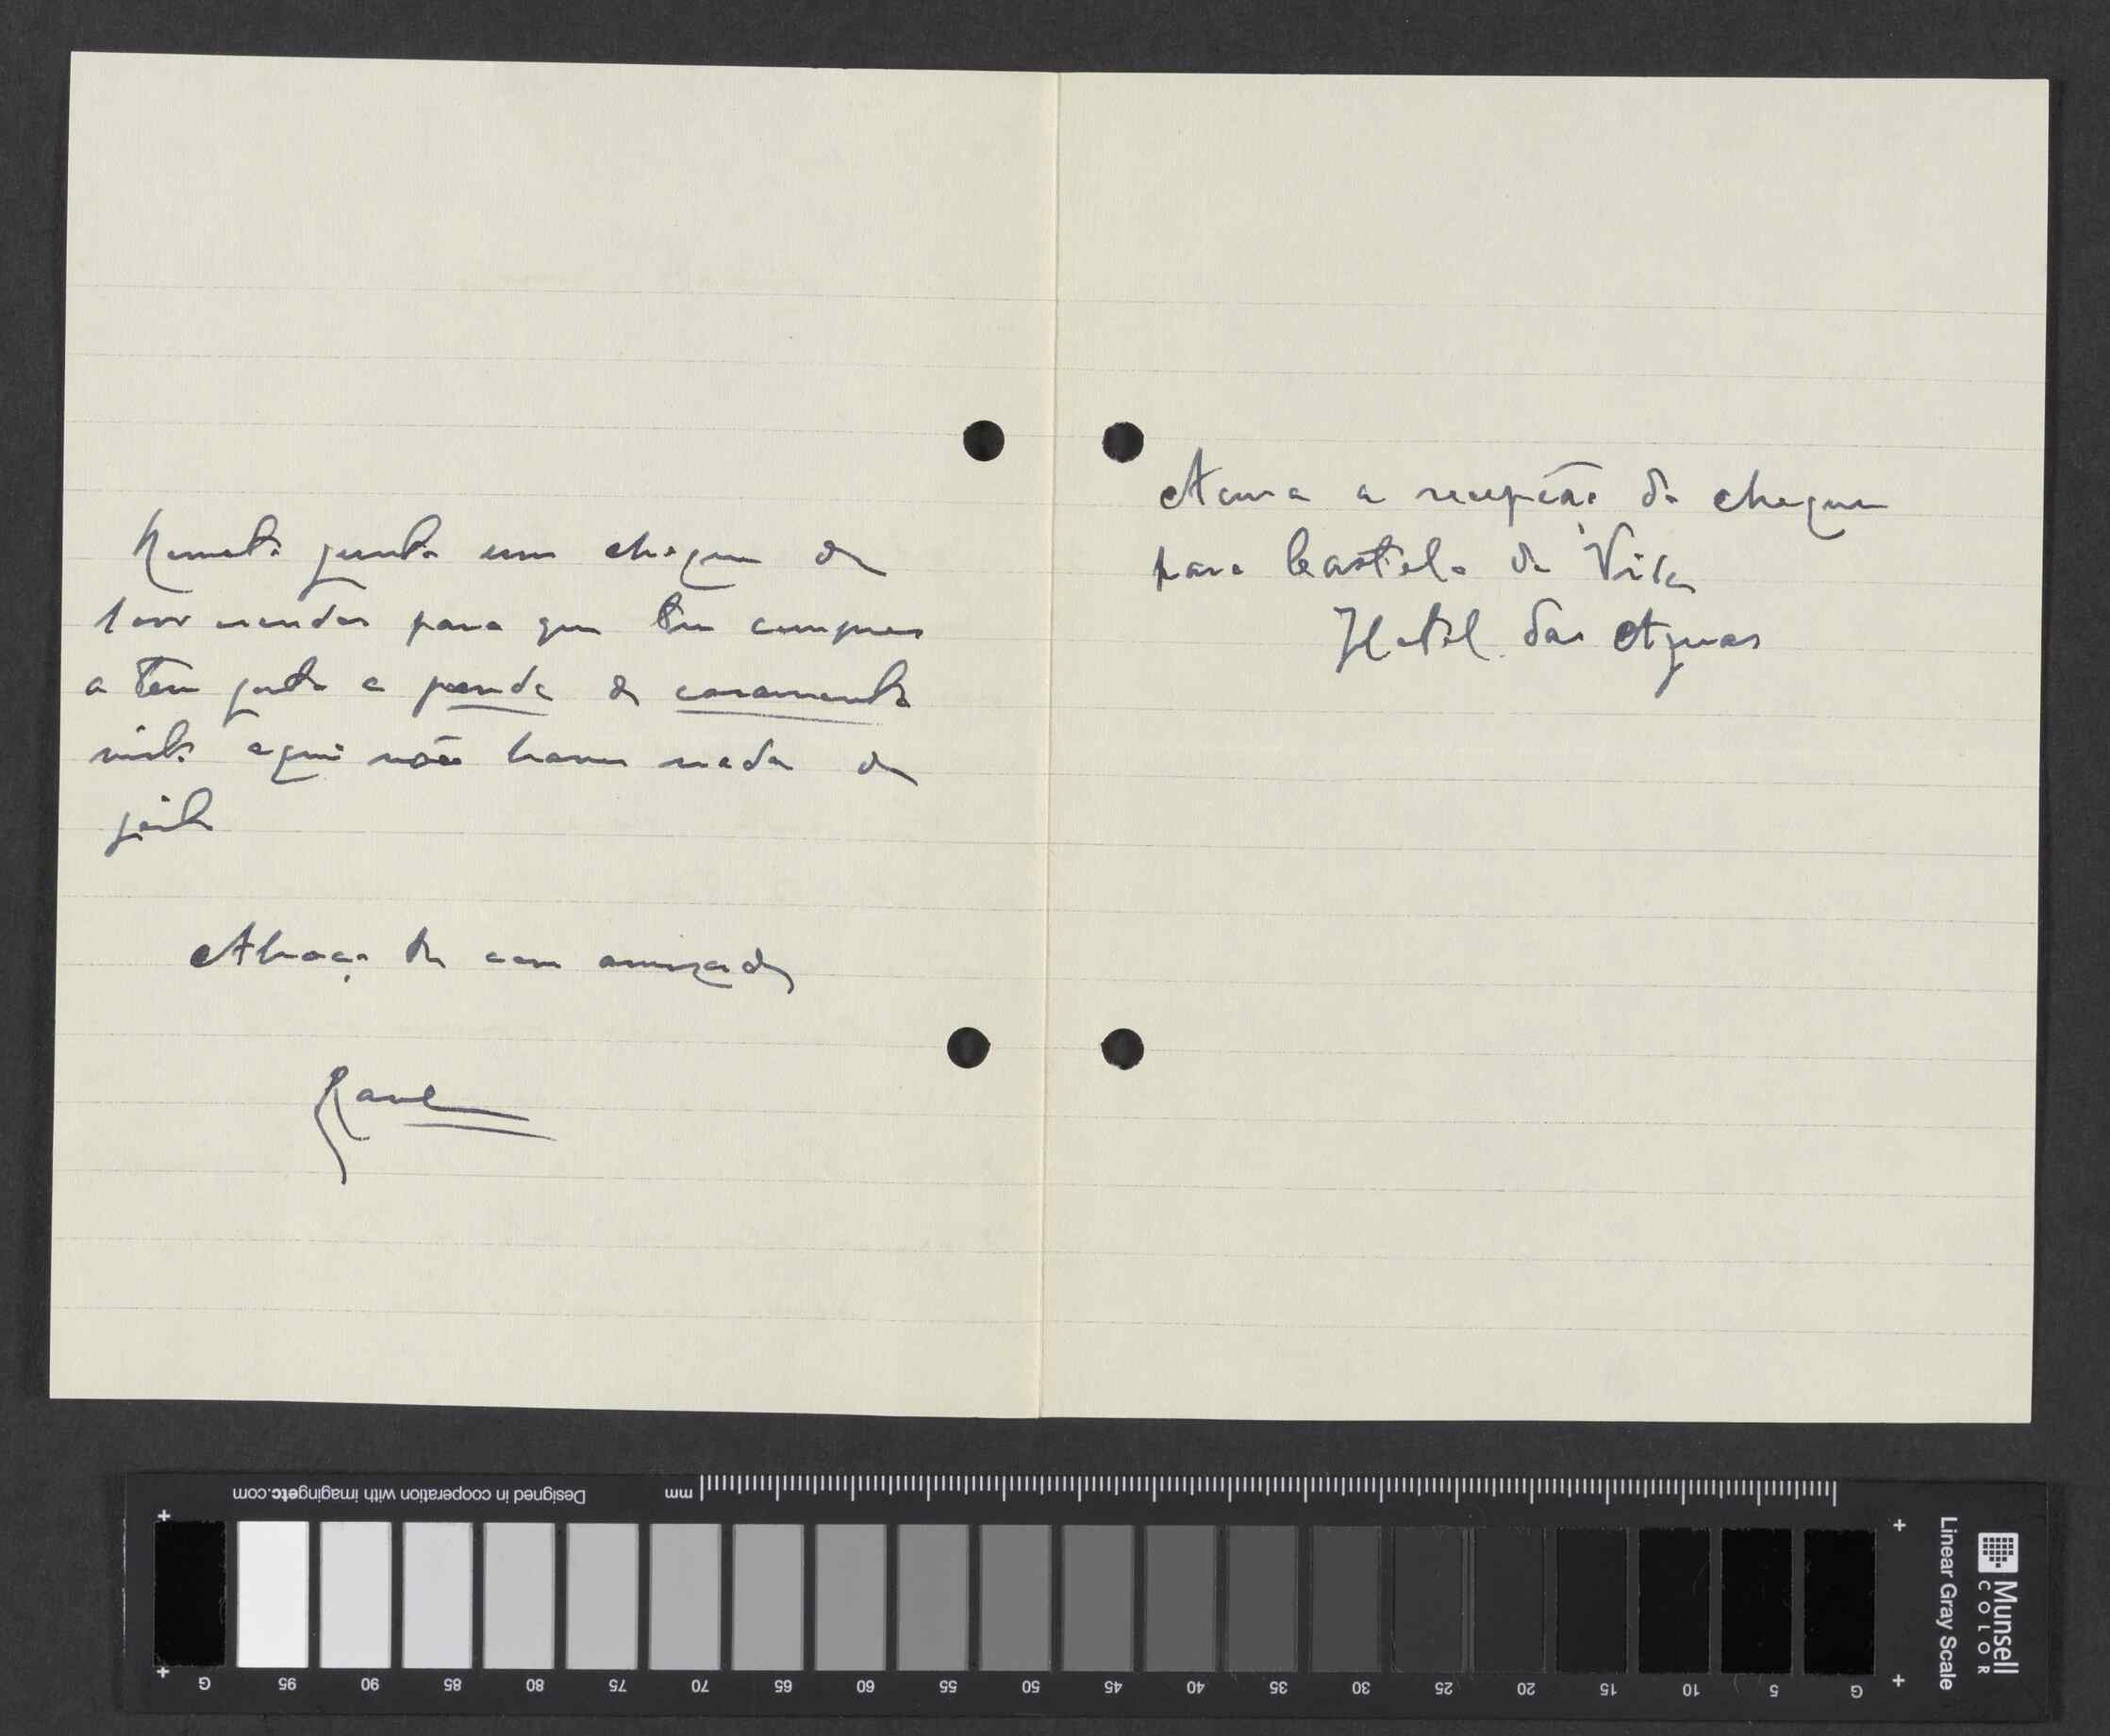 Remeto junto um cheque de
1000 escudos para que tu compres
a teu gosto a prenda de casamento
visto aqui não haver nada de
jeito
Abraça-te com amizade
Raul
Acusa a recepção do cheque
para Castelo de Vide
Hotel das Aguas
Designed in cooperation with imagingetc.com
mm
Munsell
COLOR
Linear Gray Scale
G 95 90 85 80 75 70 65 60 55 50 45 40 35 30 25 20 15 10 5 G